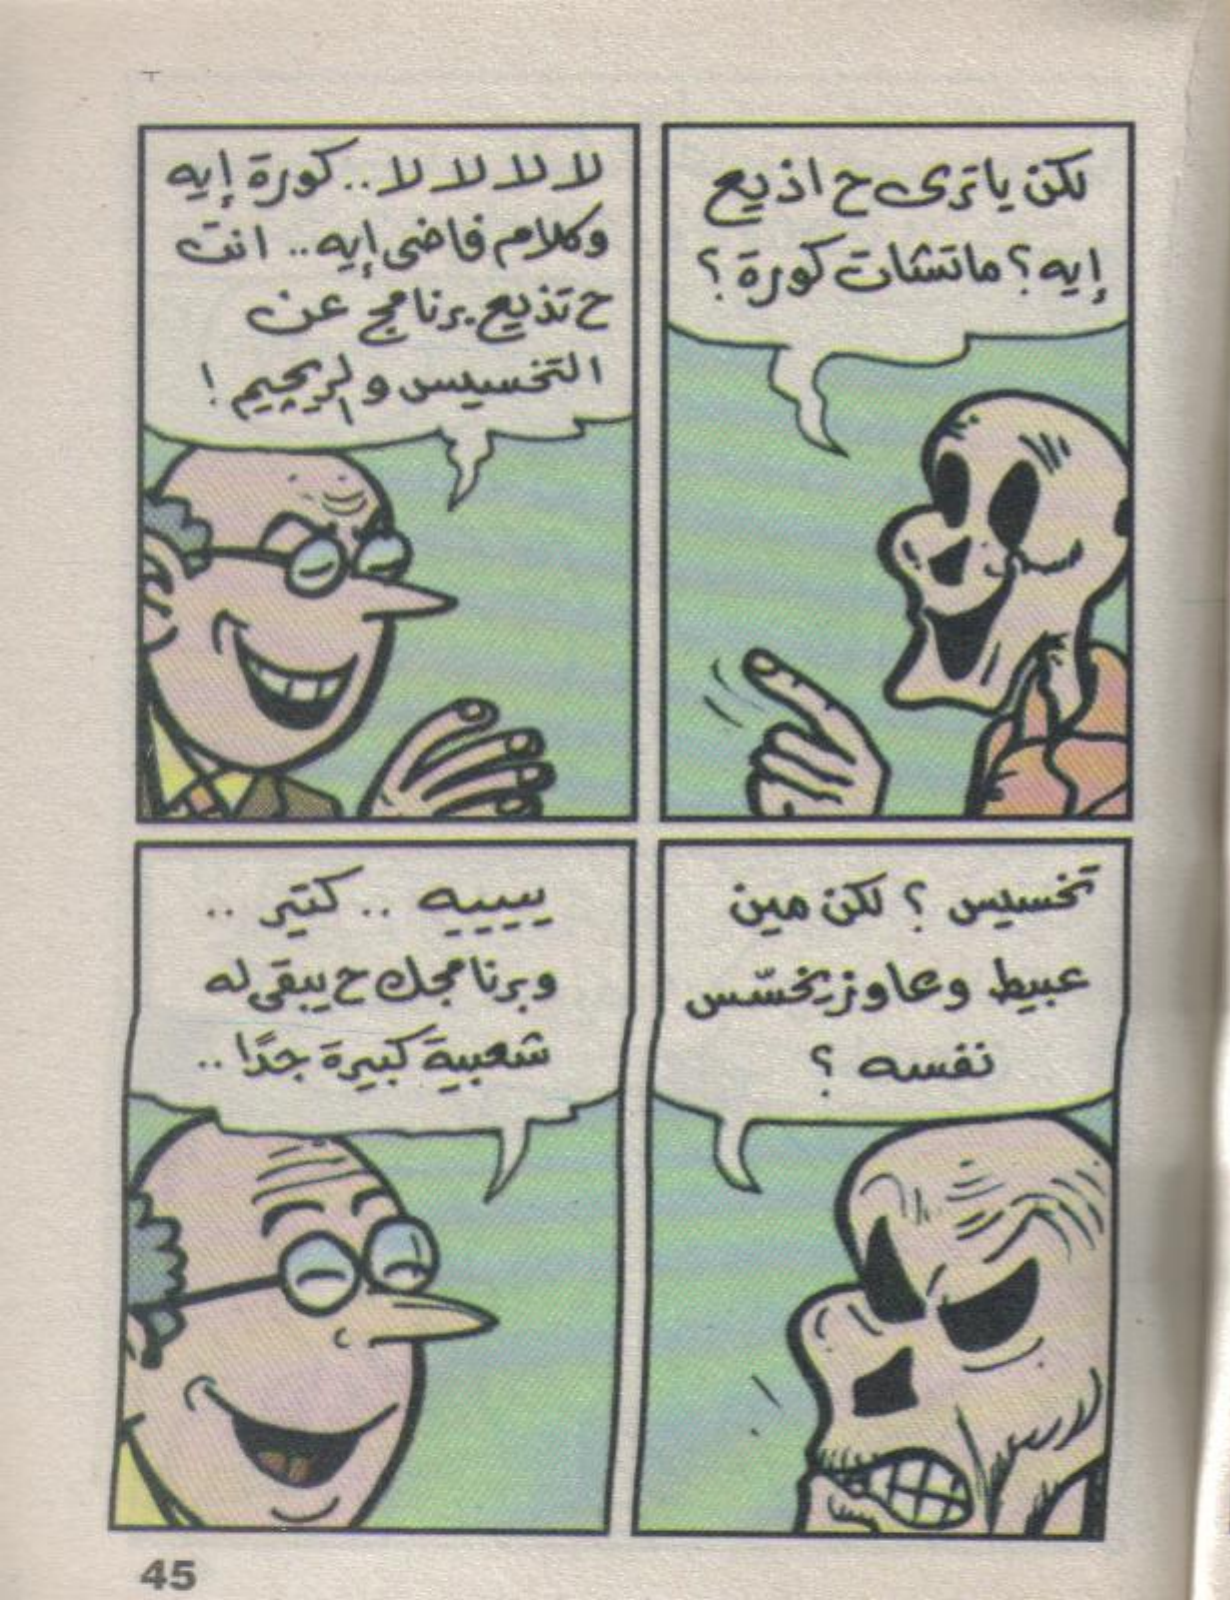 لكن ياترى ح اذيع
إيه؟ ماتشات كورة؟
لا لا لا لا.. كورة إيه
وكلام فاضى إيه.. انت
ح تذيع برنامج عن
التخسيس والريچيم!
تخسيس؟ لكن مين
عبيط وعاوز يخسّس
نفسه؟
يييييه.. كتير..
وبرنامجك ح يبقى له
شعبية كبيرة جدًا..
45